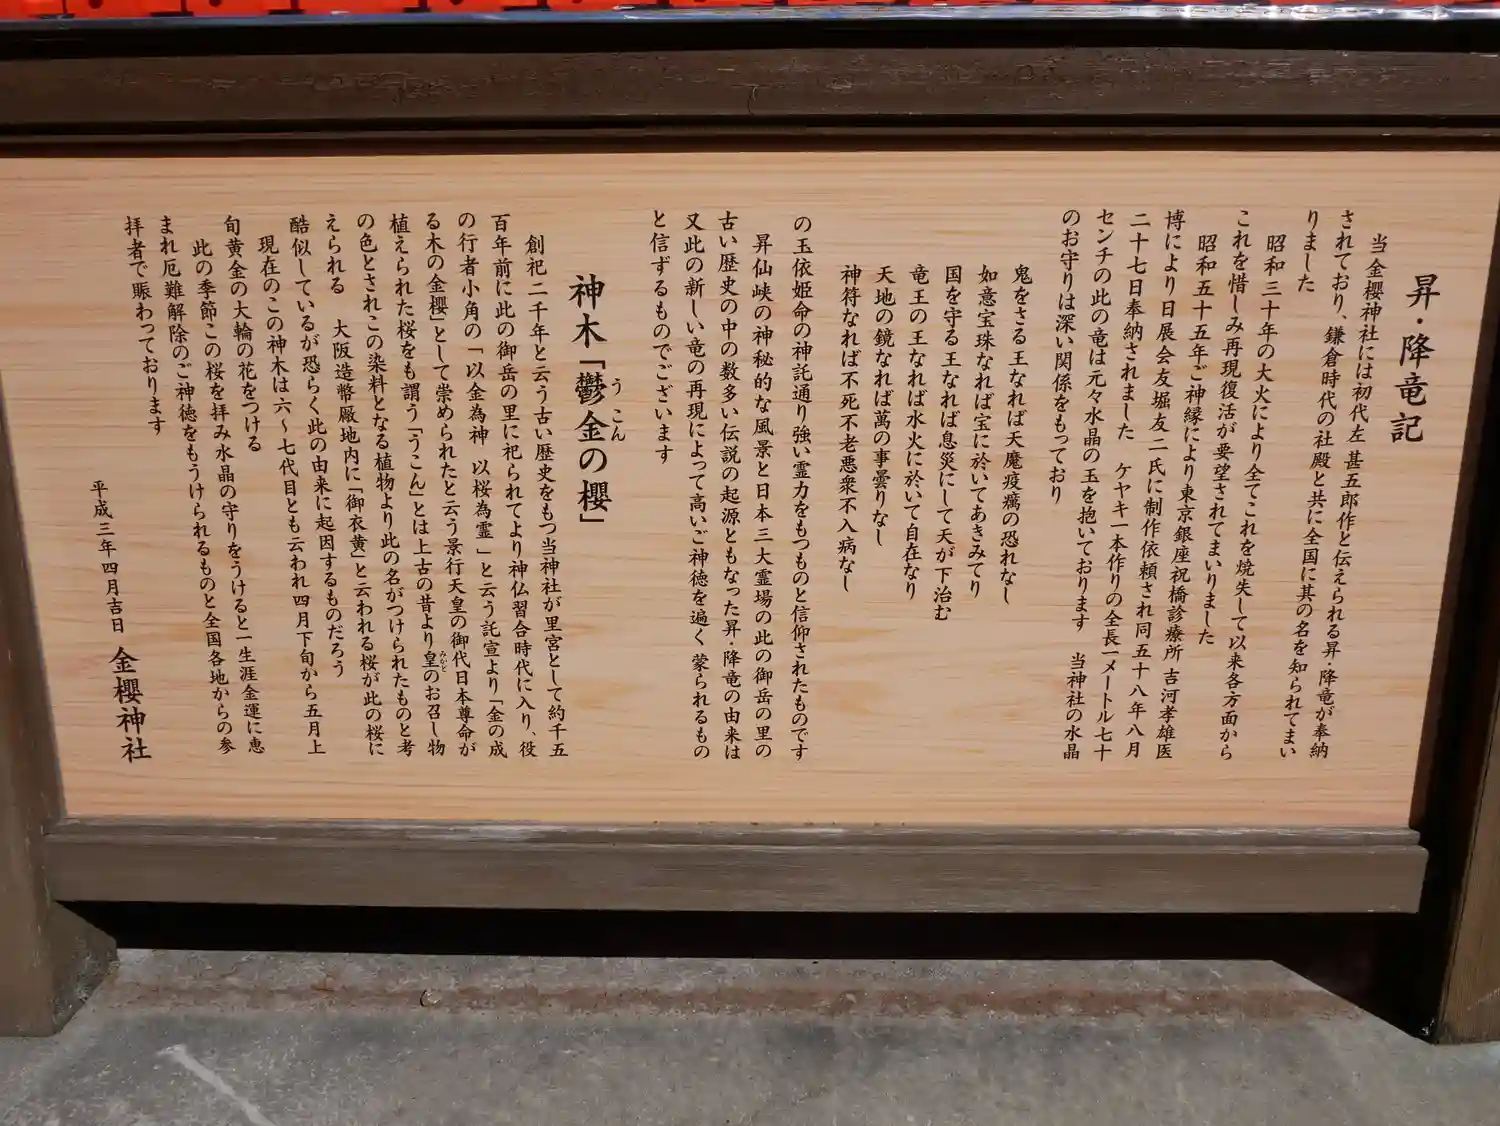 昇・降竜記
当金櫻神社には初代左 甚五郎作と伝えられる昇・降竜が奉納
されており、鎌倉時代の社殿と共に全国に其の名を知られてまい
りました
昭和三十年の大火により全てこれを焼失して以来各方面から
これを惜しみ再現復活が要望されてまいりました
昭和五十五年ご神縁により東京銀座祝橋診療所 吉河孝雄医
博により日展会友堀友二氏に制作依頼され同五十八年八月
二十七日奉納されました ケヤキ一本作りの全長一メートル七十
センチの此の竜は元々水晶の玉を抱いております 当神社の水晶
のお守りは深い関係をもっており
鬼をさる王なれば天魔疫癘の恐れなし
如意宝珠なれば宝に於いてあきみてり
国を守る王なれば息災にして天が下治む
竜王の王なれば水火に於いて自在なり
天地の鏡なれば萬の事曇りなし
神符なれば不死不老悪衆不入病なし
の玉依姫命の神託通り強い霊力をもつものと信仰されたものです
昇仙峡の神秘的な風景と日本三大霊場の此の御岳の里の
古い歴史の中の数多い伝説の起源ともなった昇・降竜の由来は
又此の新しい竜の再現によって高いご神徳を遍く蒙られるもの
と信ずるものでございます
神木「鬱金の櫻」
うこん
創祀二千年と云う古い歴史をもつ当神社が里宮として約千五
百年前に此の御岳の里に祀られてより神仏習合時代に入り、役
の行者小角の「以金為神 以桜為霊」と云う託宣より「金の成
る木の金櫻」として崇められたと云う景行天皇の御代日本尊命が
植えられた桜をも謂う「うこん」とは上古の昔より皇のお召し物
みかど
の色とされこの染料となる植物より此の名がつけられたものと考
えられる 大阪造幣厰地内に「御衣黄」と云われる桜が此の桜に
酷似しているが恐らく此の由来に起因するものだろう
現在のこの神木は六～七代目とも云われ四月下旬から五月上
旬黄金の大輪の花をつける
此の季節この桜を拝み水晶の守りをうけると一生涯金運に恵
まれ厄難解除のご神徳をもうけられるものと全国各地からの参
拝者で賑わっております
平成三年四月吉日 金櫻神社